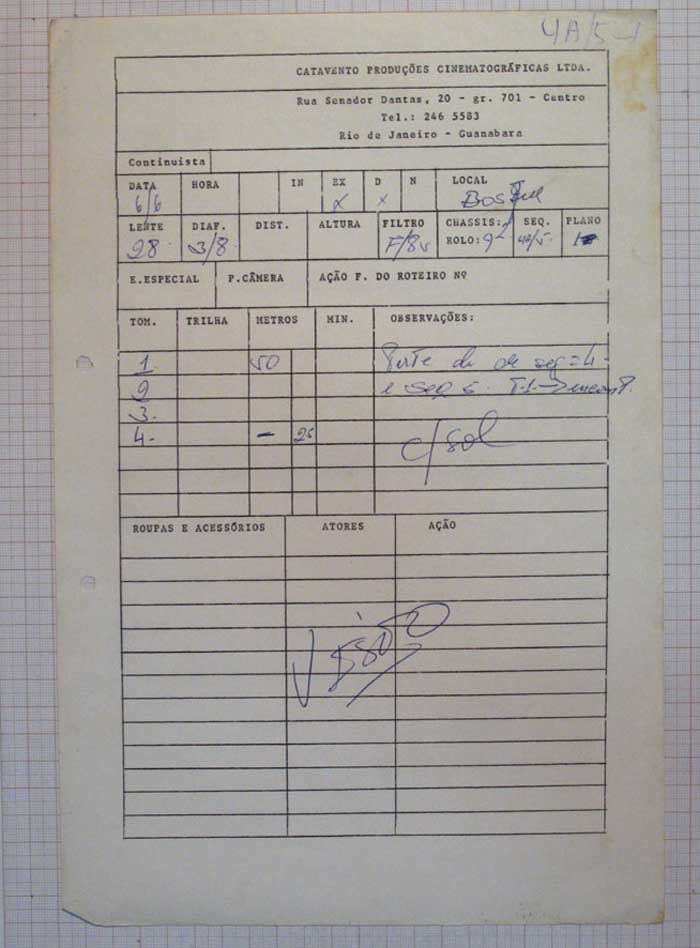 4A/5-1
CATAVENTO PRODUÇÕES CINEMATOGRÁFICAS LTDA.
Rua Senador Dantas, 20 - gr. 701 - Centro
Tel.: 246 5583
Rio de Janeiro - Guanabara
Continuista
DATA HORA IN EX D N LOCAL
6/6 x x Bosque
LENTE DIAF. DIST. ALTURA FILTRO CHASSIS: SEQ. PLANO
28 3/8 F/85 ROLO: 9 4A/5 1
E.ESPECIAL P.CÂMERA AÇÃO F. DO ROTEIRO Nº
TOM. TRILHA METROS MIN. OBSERVAÇÕES:
1 50 Parte da seq 4
2 e seq 5
3.
4. - 25 c/sol
ROUPAS E ACESSÓRIOS ATORES AÇÃO